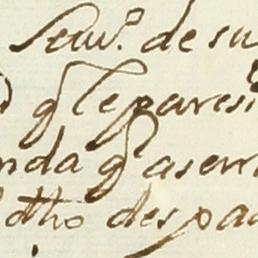 Serv.º de su
q̃ le pareci
nda q̃ aserr
dho despa